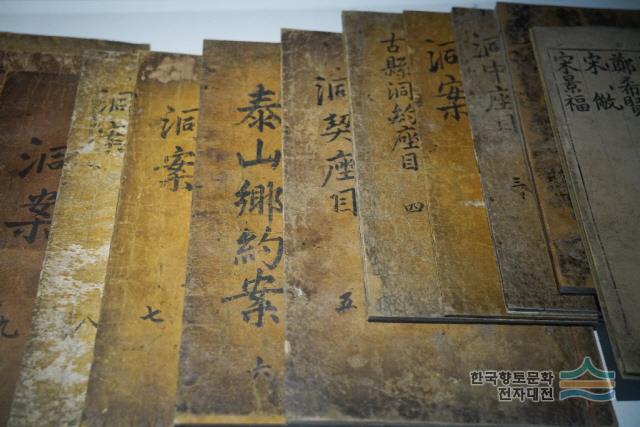 洞案
九
洞案
八
洞案
七
泰山鄕約案
六
洞契座目
五
古縣洞約座目
四
洞案
洞中座目
三
鄭希
宋
宋景福
한국향토문화
전자대전